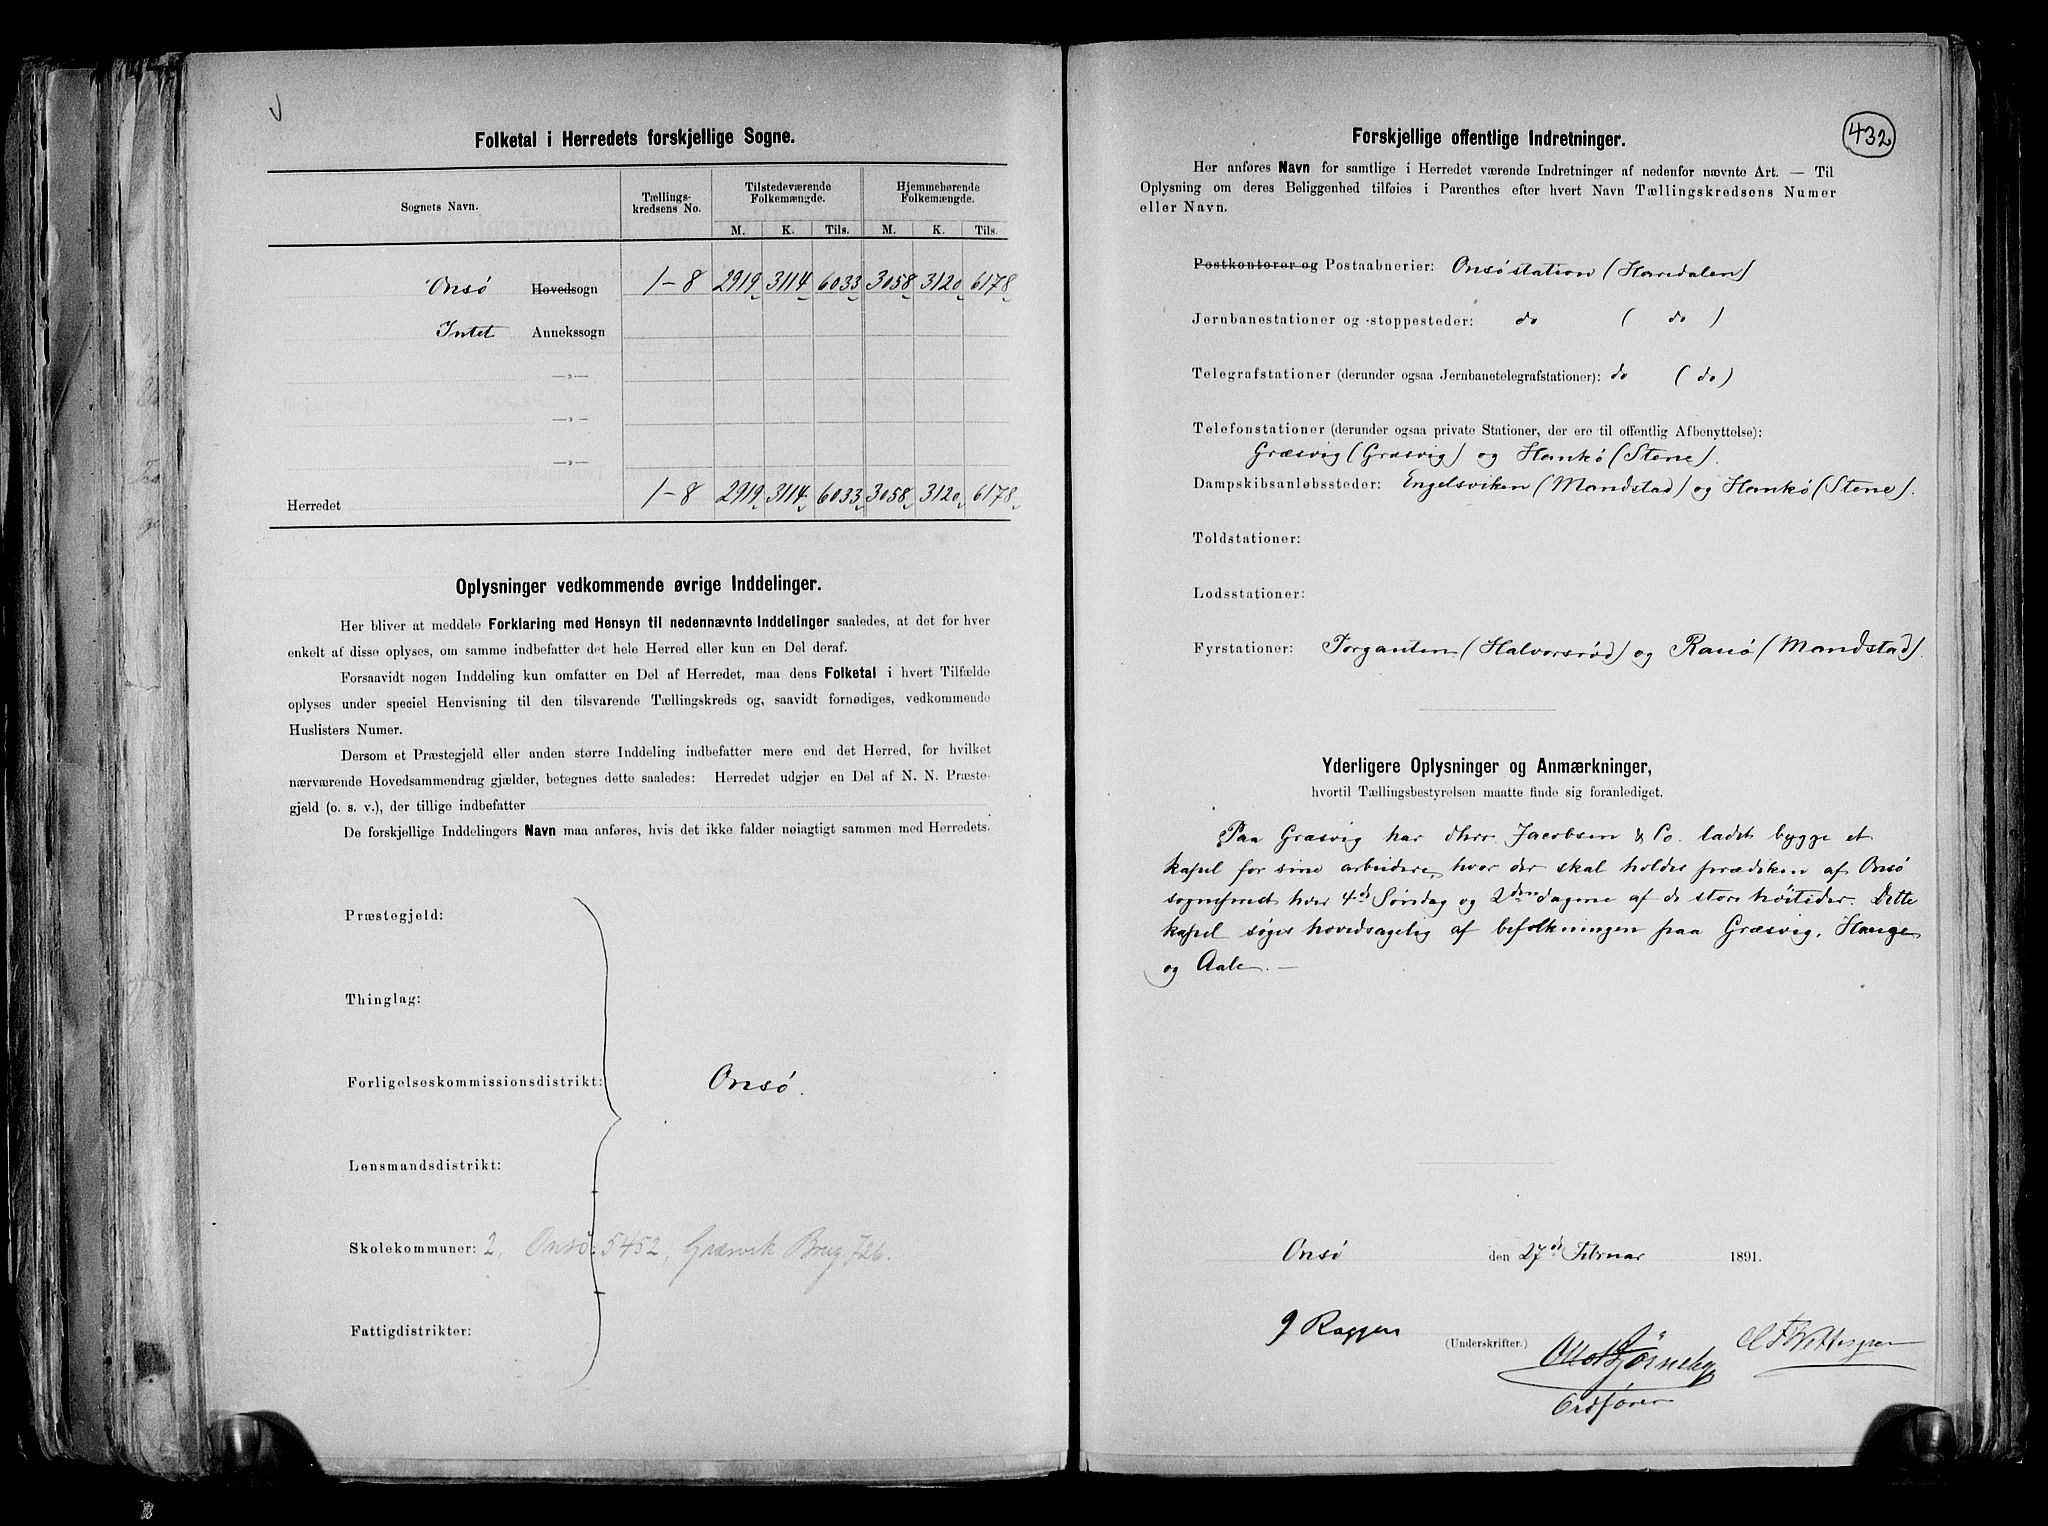 Folketal i Herredets forskjellige Sogne.
Sognets Navn.
Tællings-
kredsens No.
Tilstedeværende
Folkemængde.
Hjemmehørende
Folkemængde.
M. K. Tils. M. K. Tils.
Onsø Hovedsogn 1-8 2919 3114 6033 3058 3120 6178
Intet Annekssogn
—»—
—»—
—»—
Herredet 1-8 2919 3114 6033 3058 3120 6178
Oplysninger vedkommende øvrige Inddelinger.
Her bliver at meddele Forklaring med Hensyn til nedennævnte Inddelinger saaledes, at det for hver
enkelt af disse oplyses, om samme indbefatter det hele Herred eller kun en Del deraf.
Forsaavidt nogen Inddeling kun omfatter en Del af Herredet, maa dens Folketal i hvert Tilfælde
oplyses under speciel Henvisning til den tilsvarende Tællingskreds og, saavidt fornødiges, vedkommende
Huslisters Numer.
Dersom et Præstegjeld eller anden større Inddeling indbefatter mere end det Herred, for hvilket
nærværende Hovedsammendrag gjælder, betegnes dette saaledes: Herredet udgjør en Del af N. N. Præste-
gjeld (o. s. v.), der tillige indbefatter
De forskjellige Inddelingers Navn maa anføres, hvis det ikke falder nøiagtigt sammen med Herredets.
Præstegjeld:
Thinglag:
Forligelseskommissionsdistrikt: Onsø.
Lensmandsdistrikt:
Skolekommuner: 2, Onsø: 5452, Græsvik Brug 726.
Fattigdistrikter:
432
Forskjellige offentlige Indretninger.
Her anføres Navn for samtlige i Herredet værende Indretninger af nedenfor nævnte Art. — Til
Oplysning om deres Beliggenhed tilføies i Parenthes efter hvert Navn Tællingskredsens Numer
eller Navn.
Postkontorer og Postaabnerier: Onsøstation
Jernbanestationer og -stoppesteder: do ( do )
Telegrafstationer (derunder ogsaa Jernbanetelegrafstationer): do ( do )
Telefonstationer (derunder ogsaa private Stationer, der ere til offentlig Afbenyttelse):
Græsvig (Græsvig) og Hankø (Stene).
Dampskibsanløbssteder: Engelsviken (Mandstad) og Hankø (Stene).
Toldstationer:
Lodsstationer:
Fyrstationer: (Halvorsrød) og Ranø (Mandstad).
Yderligere Oplysninger og Anmærkninger,
hvortil Tællingsbestyrelsen maatte finde sig foranlediget.
Paa Græsvig har dHrr. Jacobsen & Co. ladet bygge et
kapel for sine arbeidere, hvor der skal holdes prædiken af Onsø
sogneprest hver 4de Søndag og 2den dagene af de store høitider. Dette
kapel søges hovedsagelig af befolkningen paa Græsvig, Hauge
og Aale. —
Onsø den 27de Februar 1891.
(Underskrifter.)
Ordfører